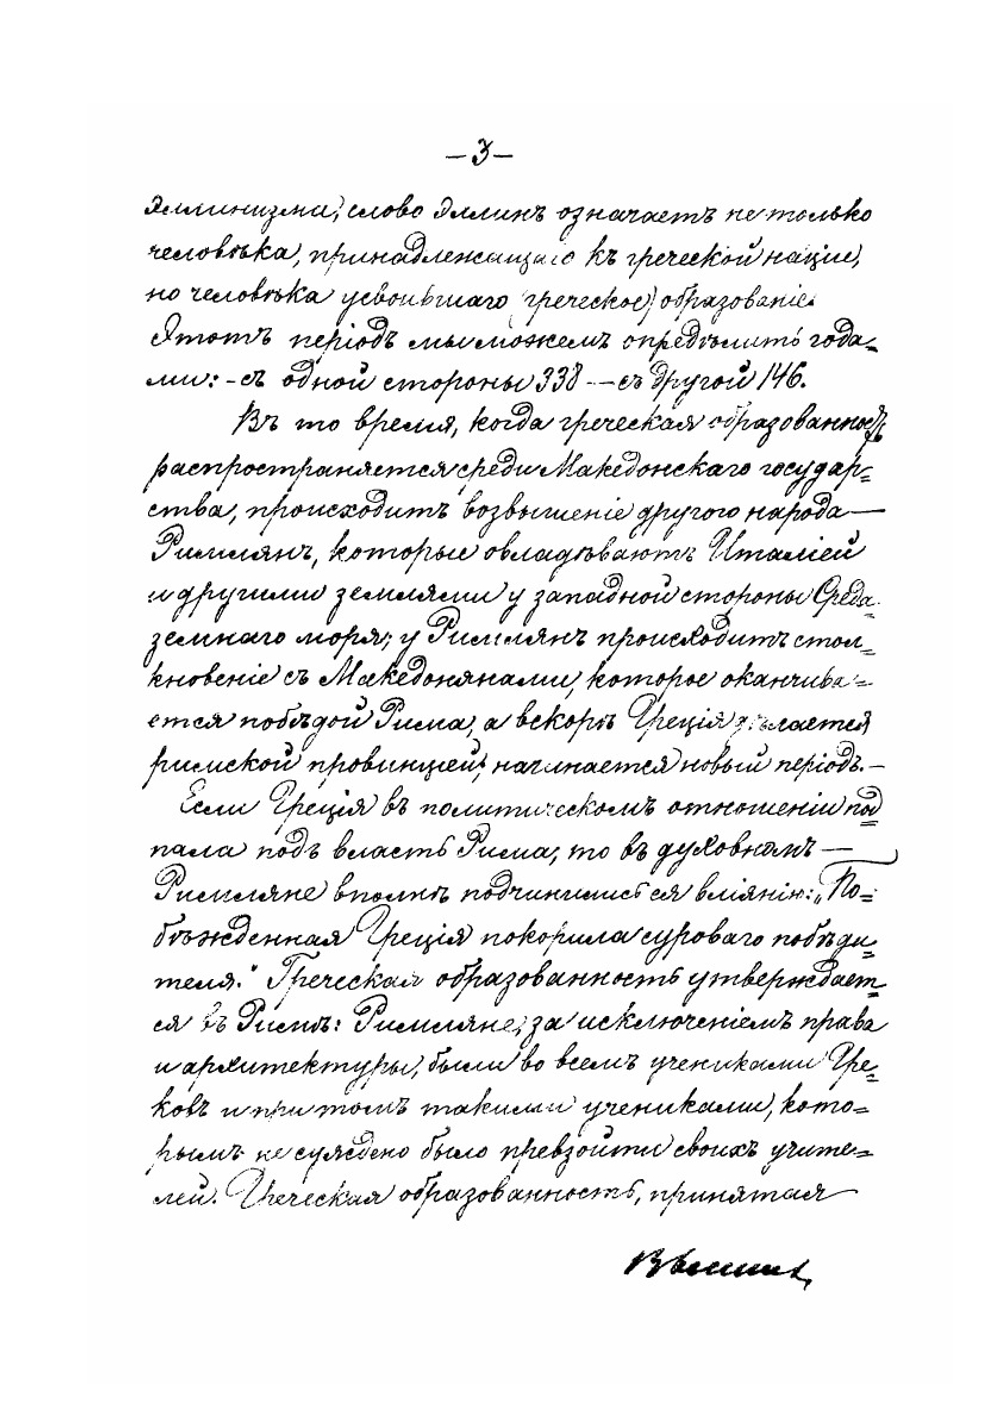 —3—
Эллинизма; слово Эллинъ означаетъ не только
человѣка, принадлежащаго къ греческой націи,
но человѣка усвоившаго (греческое) образованіе.
Этотъ періодъ мы можемъ опредѣлить года=
ми: - съ одной стороны 338 — съ другой 146.
Въ то время, когда греческая образованность
распространяется среди Македонскаго государ=
ства, происходитъ возвышеніе другого народа —
Римлянъ, которые овладѣваютъ Италіей
и другими землями у западной стороны Среди=
земнаго моря; у Римлянъ происходитъ стол=
кновеніе съ Македонянами, которое оканчива=
ется побѣдой Рима, а вскорѣ Греція дѣлается
римской провинціей; начинается новый періодъ. —
Если Греція въ политическомъ отношеніи под=
пала подъ власть Рима, то въ духовномъ —
Римляне вполнѣ подчинились ея вліянію: „По=
бѣжденная Греція покорила суроваго побѣди=
теля." Греческая образованность утверждает=
ся въ Римѣ: Римляне, за исключеніемъ права
и архитектуры, были во всемъ учениками Гре=
ковъ и при томъ такими учениками, кото=
рымъ не суждено было превзойти своихъ учите=
лей. Греческая образованность, принятая —